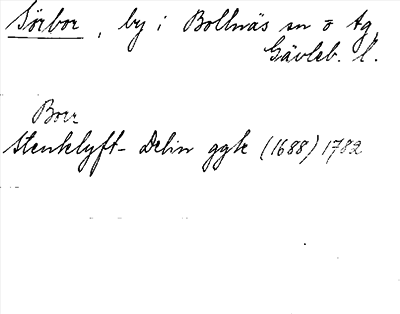 Sörbor, by i Bollnäs sn o tg
Gävleb. l.
Borr
Stenklyft- Delin ggk (1688) 1782